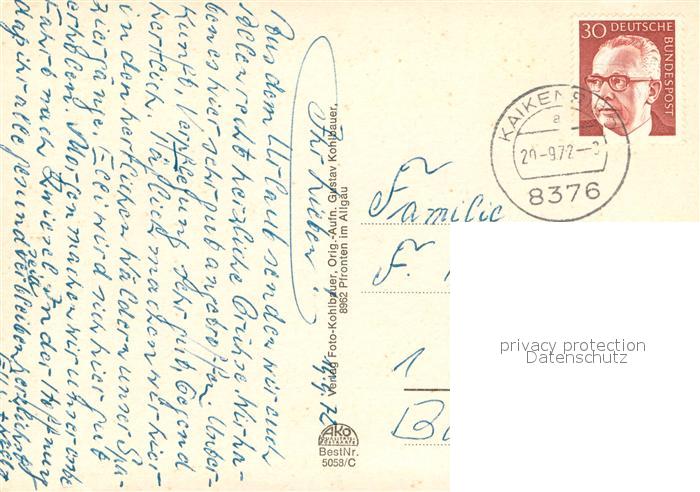 30 DEUTSCHE
BUNDESPOST
KAIKEN
a
20-9.72-
8376
Ihr Lieben!
Aus dem Urlaub senden wir euch
allen recht herzliche Grüße. Wir ha-
ben es hier sehr gut angetroffen. Unter-
kunft, Verpflegung sehr gut, Gegend
herrlich. Täglich machen wir hier
in den herrlichen Wäldern unser Spa-
ziergänge. Eli wird sich hier gut
erholen. Morgen machen wir
Fahrt nach Zwiesel. In der Hoffnung
daß ihr alle gesund seid
Familie
F.
1
Verlag Foto-Kohlbauer, Orig.-Aufn. Gustav Kohlbauer,
8962 Pfronten im Allgäu
AKO
QUALITÄTS
POSTKARTE
BestNr.
5058/C
privacy protection
Datenschutz